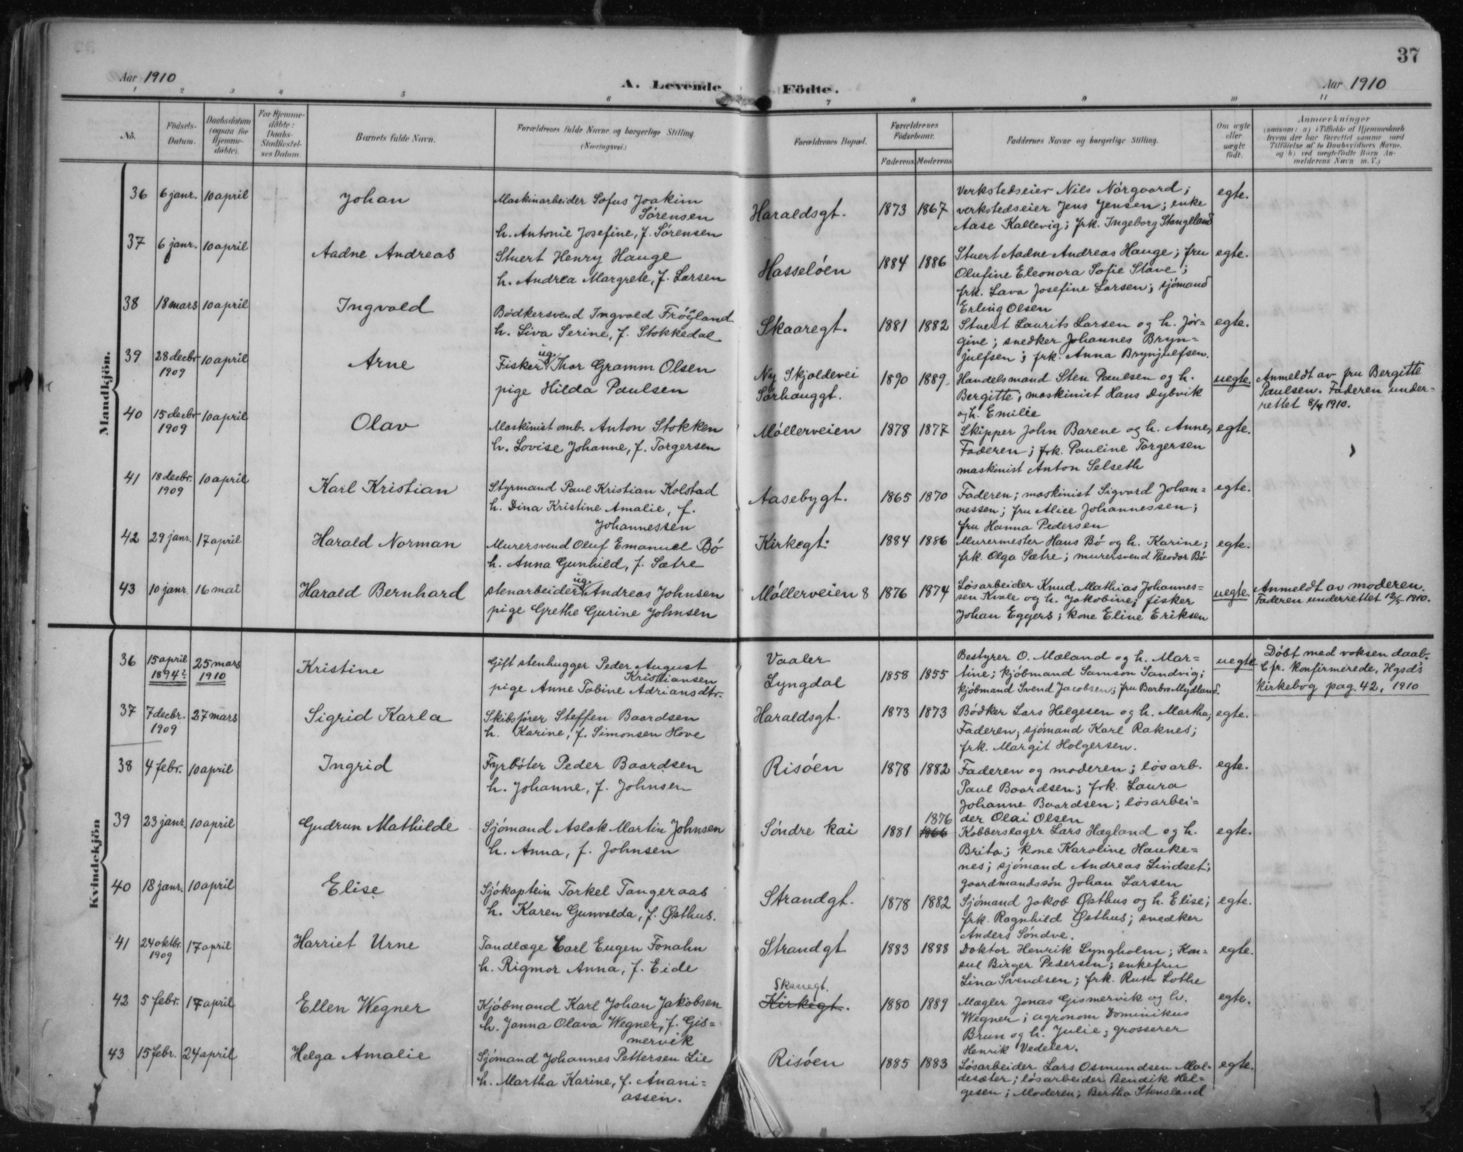 37
Aar 1910
A. Levende Födte.
Aar 1910
1 2 3 4 5 6 7 8 9 10 11
No.
Födsels-Datum.
Daabsdatum (ogsaa for Hjemme-döbte).
For Hjemme-döbte: Daabs-Stadfæstel-ses Datum.
Barnets fulde Navn.
Forældrenes fulde Navne og borgerlige Stilling (Næringsvei).
Forældrenes Bopæl.
Forældrenes Födselsaar.
Faderens. Moderens.
Faddernes Navne og borgerlige Stilling.
Om ægte eller uægte födt.
Anmærkninger
Mandkjön.
36 6 janr. 10 april Johan
Maskinarbeider Sofus Joakim
Sørensen
h. Antonie Josefine, f. Sørensen
Haraldsgt. 1873 1867
Verkstedseier Nils Nørgaard;
verkstedseier Jens Jensen; enke
Aase Kallevig; frk. Ingeborg Stangeland
egte.
37 6 janr. 10 april Aadne Andreas
Stuert Henry Hauge
h. Andrea Margrete, f. Larsen
Hasseløen 1884 1886
Stuert Aadne Andreas Hauge; fru
Olufine Eleonora Sofie Stave;
frk. Lava Josefine Larsen; sjømand
Erling Olsen
egte.
38 18 mars 10 april Ingvald
Bødkersvend Ingvald Frøiland
h. Siva Serine, f. Stokkedal
Skaaregt. 1881 1882
Stuert Laurits Larsen og h. Jør-
gine; snedker Johannes Bryn-
julfsen; frk. Anna Brynjulfsen.
egte.
39 28 decbr. 1909 10 april Arne
Fisker ug. Thor Gramm Olsen
pige Hilda Paulsen
Ny Skjoldevei
Sørhauggt.
1890 1889
Handelsmand Sten Paulsen og h.
Bergitte; maskinist Hans Dybvik
og h. Emilie
uegte
Anmeldt av fru Bergitte
Paulsen. Faderen under-
rettet 8/4 1910.
40 15 decbr 1909 10 april Olav
Maskinist omb. Anton Stokken
h. Lovise Johanne, f. Torgersen
Møllerveien 1878 1877
Skipper John Barene og h. Anne;
Faderen; frk. Pauline Torgersen
maskinist Anton Selseth
egte.
41 18 decbr. 1909 10 april Karl Kristian
Styrmand Paul Kristian Kolstad
h. Dina Kristine Amalie, f.
Johannessen
Aasebygt. 1865 1870
Faderen; maskinist Sigvard Johan-
nessen; fru Alice Johannessen;
fru Hanna Pedersen
egte.
42 29 janr. 17 april Harald Norman
Murersvend Oluf Emanuel Bø
h. Anna Gunhild, f. Sætre
Kirkegt. 1884 1886
Murermester Hans Bø og h. Karine;
frk. Olga Sætre; murersvend Theodor Bø
egte.
43 10 janr. 16 mai Harald Bernhard
stenarbeider ug. Andreas Johnsen
pige Grethe Gurine Johnsen
Møllerveien 8 1876 1874
Løsarbeider Knud Mathias Johannes-
sen Kvale og h. Jakobine; fisker
Johan Eggers; kone Eline Eriksen
uegte.
Anmeldt av moderen.
Faderen underrettet 12/5 1910.
Kvindekjön
36 15 april 1894 25 mars 1910 Kristine
Gift stenhugger Peder August
Kristiansen
pige Anne Tobine Adriansdtr.
Vaaler
Lyngdal
1858 1855
Bestyrer O. Mæland og h. Mar-
tine; kjøbmand Samson Sandvig;
kjøbmand Svend Jacobsen; fru Barbro Mydland.
uegte
Døbt med voksen daab.
Cfr. konfirmerede, Hgsd's
Kirkebog pag. 42, 1910
37 7 decbr. 1909 27 mars Sigrid Karla
Skibsfører Steffen Baardsen
h. Karine, f. Simonsen Hove
Haraldsgt. 1873 1873
Bødker Lars Helgesen og h. Martha;
Faderen; sjømand Karl Raknes;
frk. Margit Holgersen.
egte.
38 4 febr. 10 april Ingrid
Fyrbøter Peder Baardsen
h. Johanne, f. Johnsen
Risøen 1878 1882
Faderen og moderen; løsarb.
Paul Baardsen; frk. Laura
Johanne Baardsen; løsarbei-
der Olai Olsen
egte.
39 23 janr. 10 april Gudrun Mathilde
Sjømand Aslak Martin Johnsen
h. Anna, f. Johnsen
Søndre kai 1881 1876 1866
Kobberslager Lars Hægland og h.
Brita; kone Karoline Hauke-
nes; sjømand Andreas Lindset;
gaardmandssøn Johan Larsen
egte.
40 18 janr. 10 april Elise
Sjøkaptein Torkel Tangeraas
h. Karen Gunvalda, f. Østhus.
Strandgt. 1878 1882
Sjømand Jakob Østhus og h. Elise;
frk. Ragnhild Østhus; snedker
Anders Søndve.
egte.
41 24 oktbr. 1909 17 april Harriet Urne
Tandlæge Carl Eugen Fonahn
h. Rigmor Anna, f. Eide
Strandgt 1883 1888
Doktor Henrik Lyngholm; Kon-
sul Birger Pedersen; enkefru
Lina Svendsen; frk. Ruth Lothe
egte.
42 5 febr. 17 april Ellen Wegner
Kjøbmand Karl Johan Jakobsen
h. Janna Olava Wegner, f. Gis-
mervik
Skaregt.
Kirkegt.
1880 1889
Mægler Jonas Gismervik og h.
Wegner; agronom Dominikus
Brun og h. Julie; grosserer
Henrik Vedeler.
egte.
43 15 febr. 24 april Helga Amalie
Sjømand Johannes Pettersen Lie
h. Martha Karine, f. Anani-
assen.
Risøen 1885 1883
Løsarbeider Lars Osmundsen Mal-
desæter; løsarbeider Bendik Hel-
gesen; Moderen; Bertha Stensland
egte.